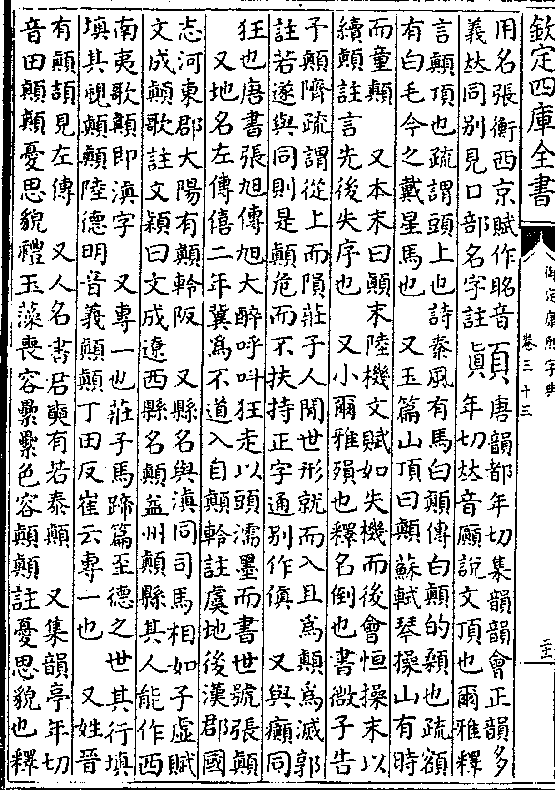 欽定四庫全書
御定康熙字典
卷三十三
用名張衡西京賦作眳音
義𠀤同别見口部名字註
顛
唐韻都年切集韻韻會正韻多
年切𠀤音𢥞說文頂也爾雅釋
言顛頂也疏謂頭上也詩秦風有馬白顛傳白顛的顙也疏額
有白毛今之戴星馬也 又玉篇山頂曰顛 蘇軾琴操山有時
而童顛 又本末曰顛末陸機文賦如失機而後會恒操末以
續顛註言先後失序也 又小爾雅殞也釋名倒也書微子告
予顛隮疏謂從上而隕莊子人間世形就而入且爲顛爲滅郭
註若遂與同則是顛危而不扶持正字通別作傎 又與癲同
狂也唐書張旭傳旭大醉呼叫狂走以頭濡墨而書世號張顛
又地名左傳僖二年冀爲不道入自顛軨註虞地後漢郡國
志河東郡大陽有顛軨阪 又縣名與滇同司馬相如子虛賦
文成顛歌註文穎曰文成遼西縣名顛益州顛縣其人能作西
南夷歌顛即滇字 又專一也莊子馬蹄篇至德之世其行填
填其視顛顛陸德明音義顛顛丁田反崔云專一也 又姓晉
有顛頡見左傳 又人名書君奭有若泰顛 又集韻亭年切
音田顛顛憂思貌禮玉藻喪容纍纍色容顛顛註憂思貌也釋